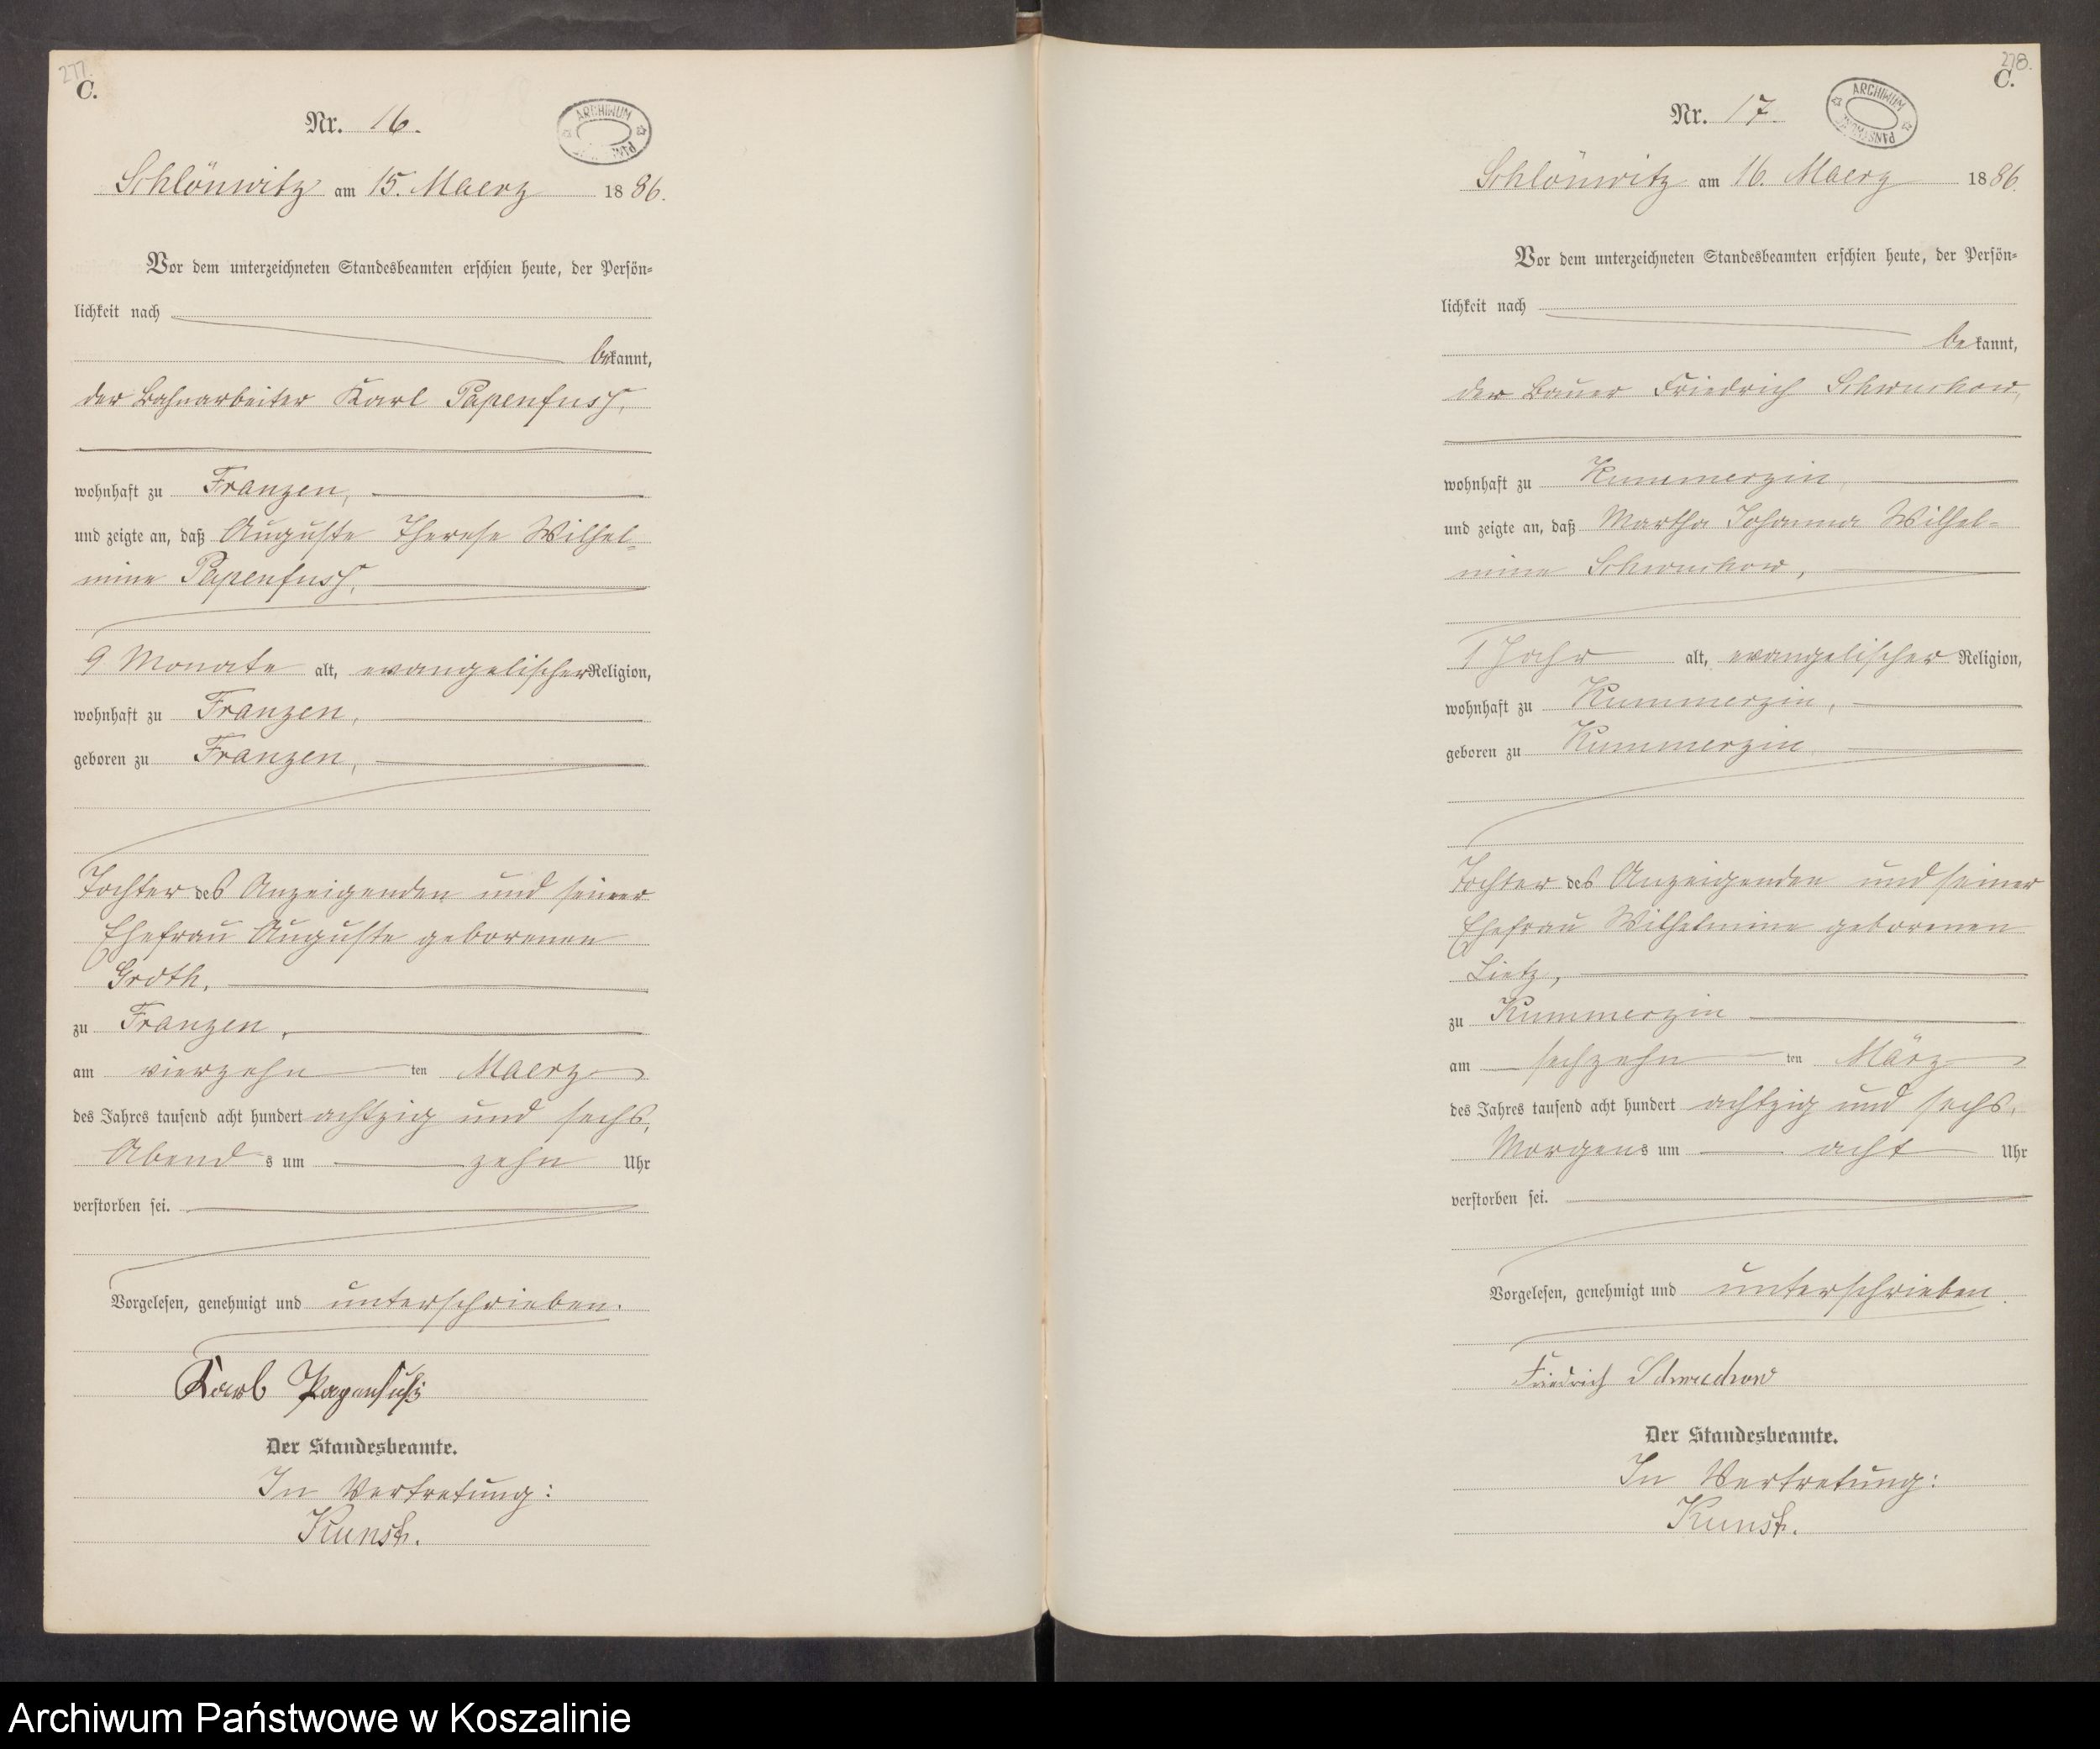 277.
C.
Nr. 16.
ARCHIWUM
Schlönwitz am 15. Maerz 1886.
Vor dem unterzeichneten Standesbeamten erschien heute, der Persön-
lichkeit nach
bekannt,
der Bahnarbeiter Karl Papenfuss,
wohnhaft zu Franzen,
und zeigte an, daß Auguste Therese Wilhel-
mine Papenfuss,
9 Monate alt, evangelischer Religion,
wohnhaft zu Franzen,
geboren zu Franzen,
Tochter des Anzeigenden und seiner
Ehefrau Auguste geborenen
Groth,
zu Franzen,
am vierzehn ten Maerz
des Jahres tausend acht hundert achtzig und sechs,
Abends um zehn Uhr
verstorben sei.
Vorgelesen, genehmigt und unterschrieben.
Karl Papenfuß
Der Standesbeamte.
In Vertretung:
Kunst.
278.
C.
Nr. 17.
ARCHIWUM
Schlönwitz am 16. Maerz 1886.
Vor dem unterzeichneten Standesbeamten erschien heute, der Persön-
lichkeit nach
bekannt,
der Bauer Friedrich Schwuchow,
wohnhaft zu Kummerzin,
und zeigte an, daß Martha Johanna Wilhel-
mine Schwuchow,
1 Jahr alt, evangelischer Religion,
wohnhaft zu Kummerzin,
geboren zu Kummerzin,
Tochter des Anzeigenden und seiner
Ehefrau Wilhelmine geborenen
Lietz,
zu Kummerzin
am sechzehn ten März
des Jahres tausend acht hundert achtzig und sechs,
Morgens um acht Uhr
verstorben sei.
Vorgelesen, genehmigt und unterschrieben.
Friedrich Schwuchow
Der Standesbeamte.
In Vertretung:
Kunst.
Archiwum Państwowe w Koszalinie